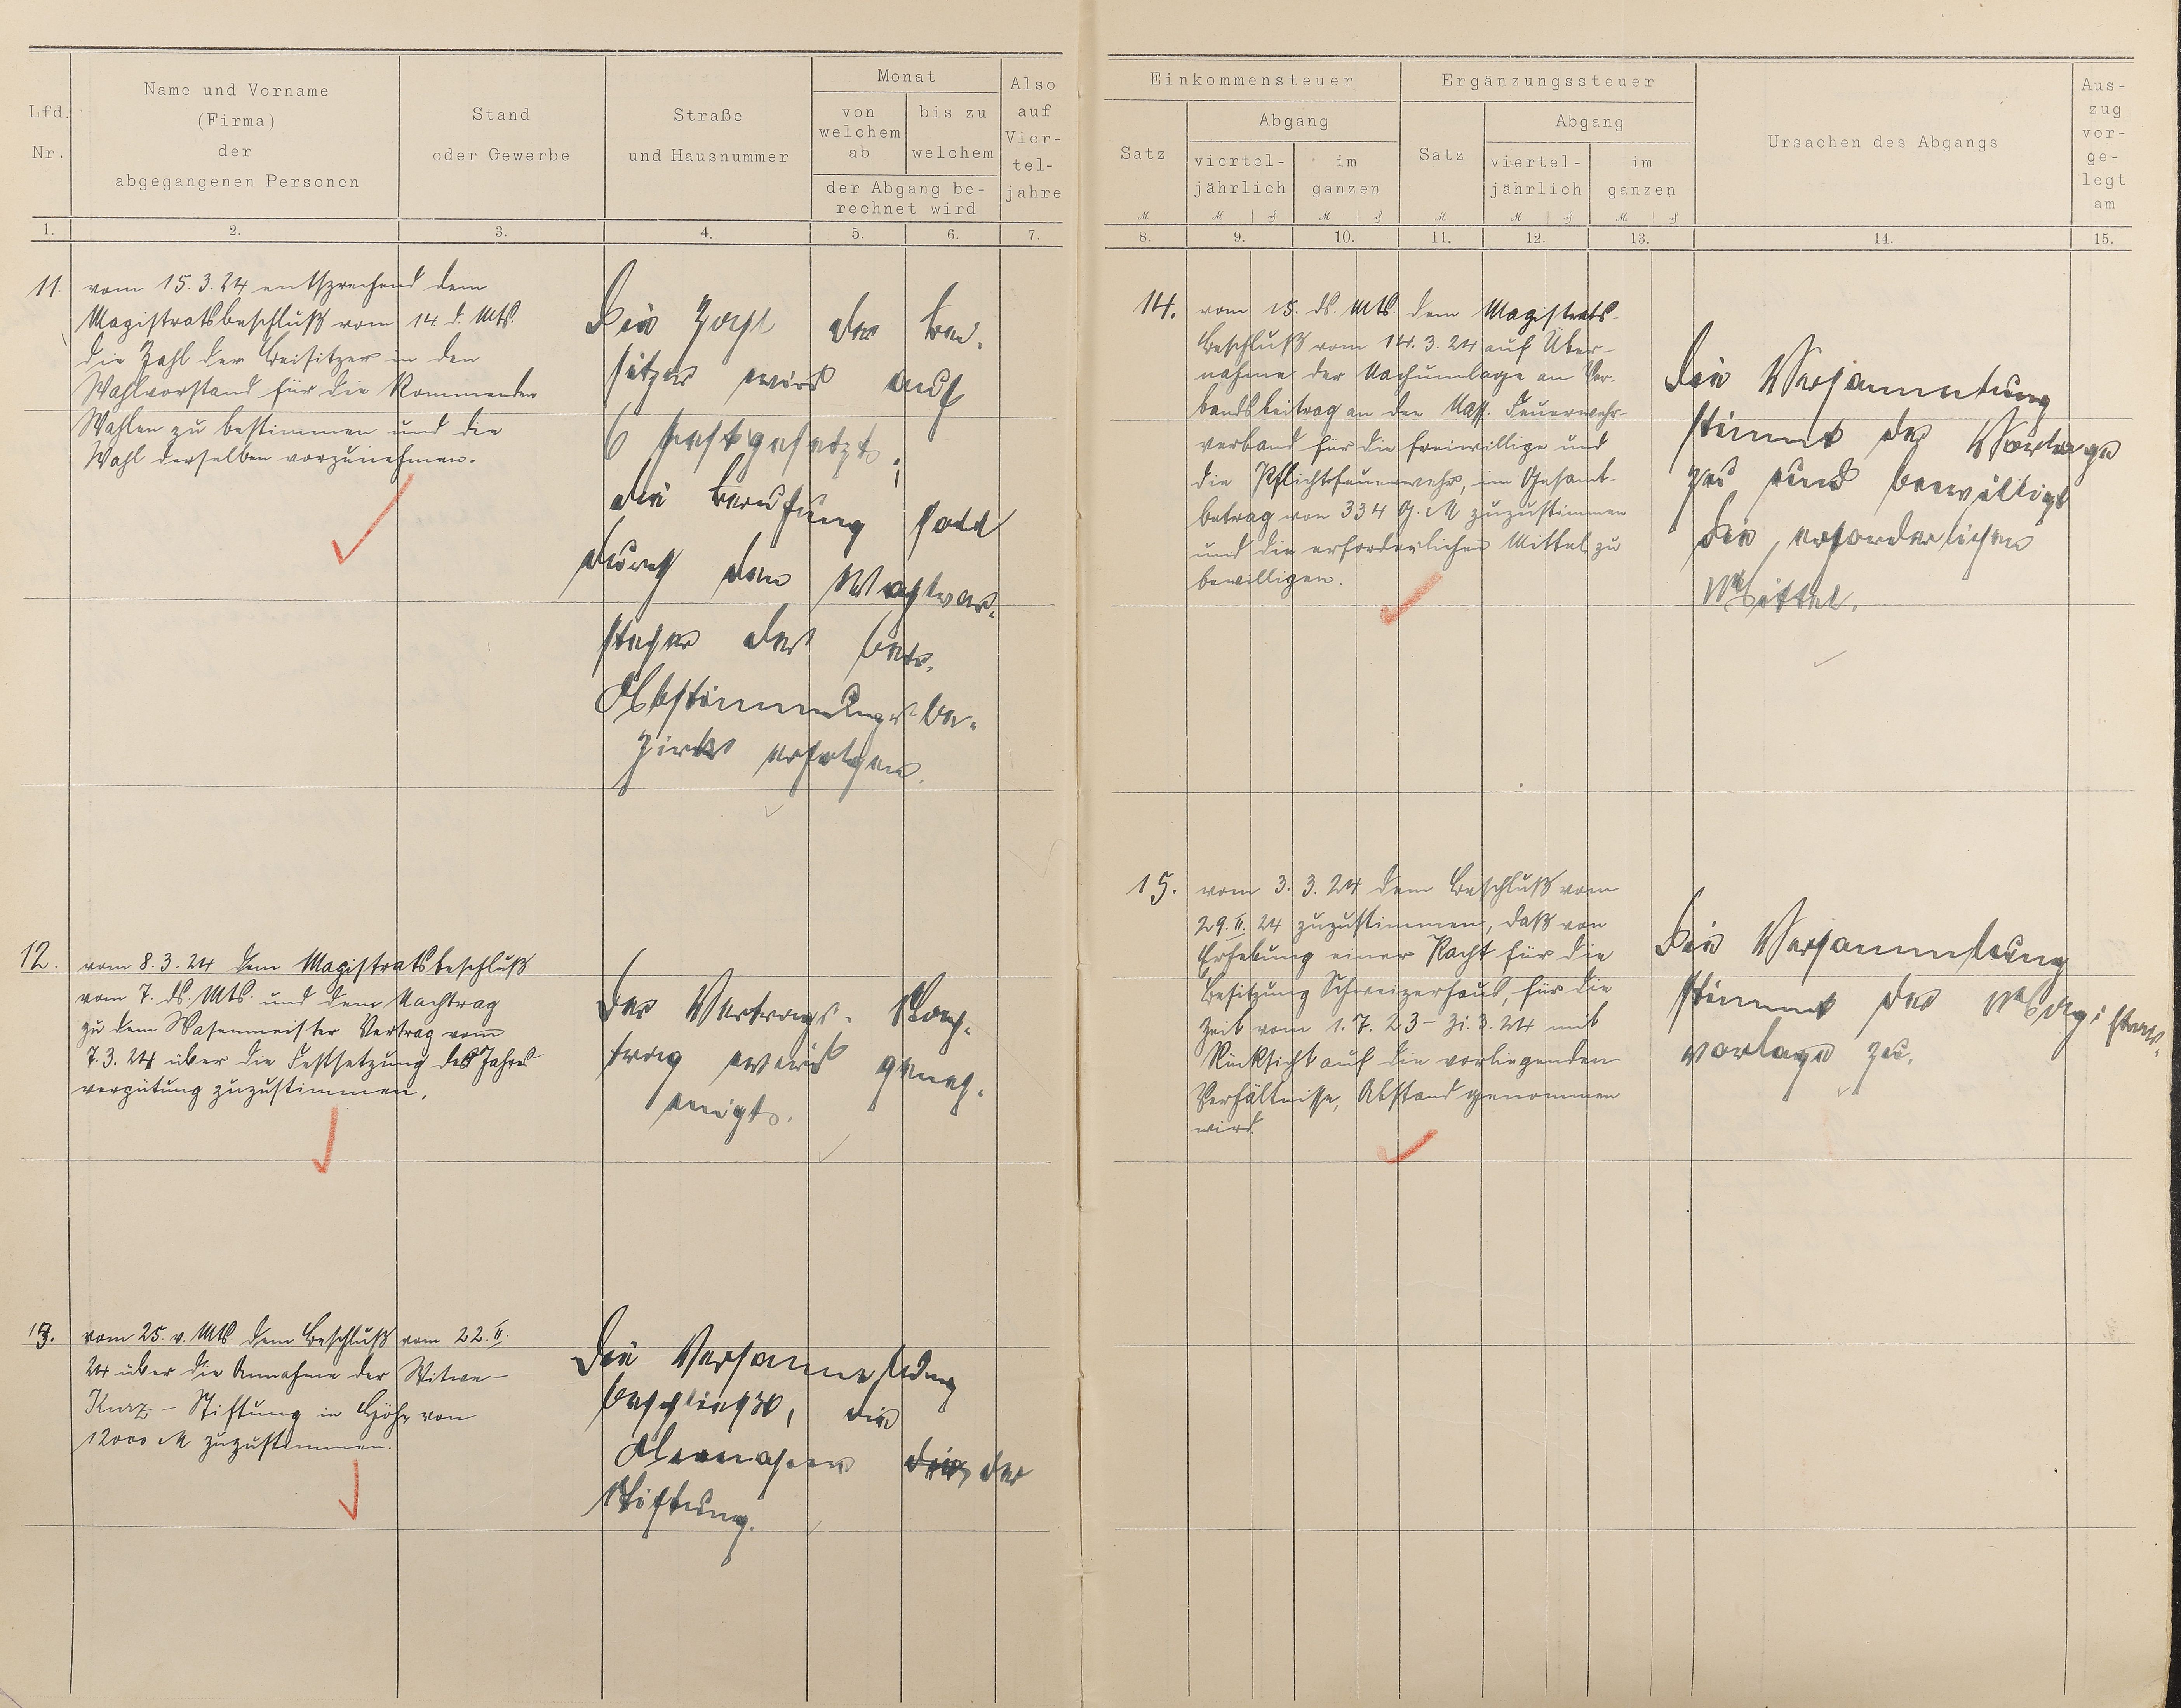 Lfd. Nr.
Name und Vorname
(Firma)
der
abgegangenen Personen
Stand
oder Gewerbe
Straße
und Hausnummer
Monat
von
welchem
ab
bis zu
welchem
der Abgang be-
rechnet wird
Also
auf
Vier-
tel-
jahre
1. 2. 3. 4. 5. 6. 7.
11. vom 15.3.24 entsprechend dem
Magistratsbeschluß vom 14 d. Mts.
die Zahl der Beisitzer in den
Wahlvorstand für die kommenden
Wahlen zu bestimmen und die
Wahl derselben vorzunehmen.
Die Zahl der Bei-
sitzer wird auf
6 festgesetzt;
die Berufung soll
durch den Wahlvor-
steher des betr.
Abstimmungsbe-
zirks erfolgen.
12. vom 8.3.24 dem Magistratsbeschluß
vom 7. ds. Mts. und dem Nachtrag
zu dem Wasenmeister Vertrag vom
7.3.24 über die Festsetzung des Jahres
vergütung zuzustimmen.
Der Vertrags-Nach-
trag wird geneh-
migt.
13. vom 25. v. Mts. dem Beschluß vom 22.II.
24 über die Annahme der Witwe-
Kurz-Stiftung in Höhe von
12000 M zuzustimmen.
Die Versammlung
beschließt, die
Annahme der
Stiftung.
Einkommensteuer
Satz
Abgang
viertel-
jährlich
im
ganzen
Ergänzungssteuer
Satz
Abgang
viertel-
jährlich
im
ganzen
Ursachen des Abgangs
Aus-
zug
vor-
ge-
legt
am
M M ₰ M ₰ M M ₰ M ₰
8. 9. 10. 11. 12. 13. 14. 15.
14. vom 15. ds. Mts. dem Magistrats-
Beschluß vom 14.3.24 auf Über-
nahme der Nachumlage an Ver-
bandsbeitrag an den Nass. Feuerwehr-
verband für die freiwillige und
die Pflichtfeuerwehr, im Gesamt-
betrag von 334 G.M zuzustimmen
und die erforderlichen Mittel zu
bewilligen.
Die Versammlung
stimmt der Vorlage
zu und bewilligt
die erforderlichen
Mittel.
15. vom 3.3.24 dem Beschluß vom
29.II.24 zuzustimmen, daß von
Erhebung einer Pacht für die
Besitzung Schweizerhaus, für die
Zeit vom 1.7.23-31.3.24 mit
Rücksicht auf die vorliegenden
Verhältnisse, Abstand genommen
wird.
Die Versammlung
stimmt der Magistrats-
vorlage zu.